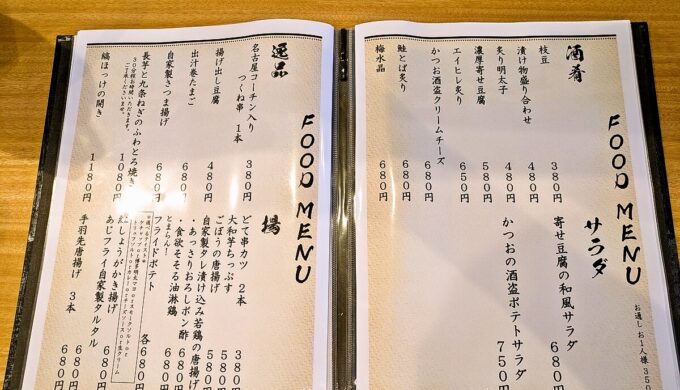 FOOD MENU
お通し お1人様 35
酒肴
枝豆 380円
漬け物盛り合わせ 480円
炙り明太子 480円
濃厚寄せ豆腐 580円
エイヒレ炙り 650円
かつお酒盗クリームチーズ 680円
鮭とば炙り 680円
梅水晶 680円
サラダ
寄せ豆腐の和風サラダ 680
かつおの酒盗ポテトサラダ 750
FOOD MENU
逸品
名古屋コーチン入り
つくね串 1本 380円
揚げ出し豆腐 480円
出汁巻たまご 680円
自家製さつま揚げ 680円
長芋と九条ねぎのふわとろ焼き 1080円
30分程お時間いただきます。
ご了承くださいませ。
縞ほっけの開き 1180円
揚
どて串カツ 2本 380
大和芋ちっぷす 380円
ごぼうの唐揚げ 580円
自家製タレ漬け込み若鶏の唐揚げ 580円
・あっさりおろしポン酢 680円
・食欲そそる油淋鶏 680円
とまらん!
フライドポテト 各680円
紅しょうがかき揚げ 680円
あじフライ自家製タルタル 680円
手羽先唐揚げ 3本 680円